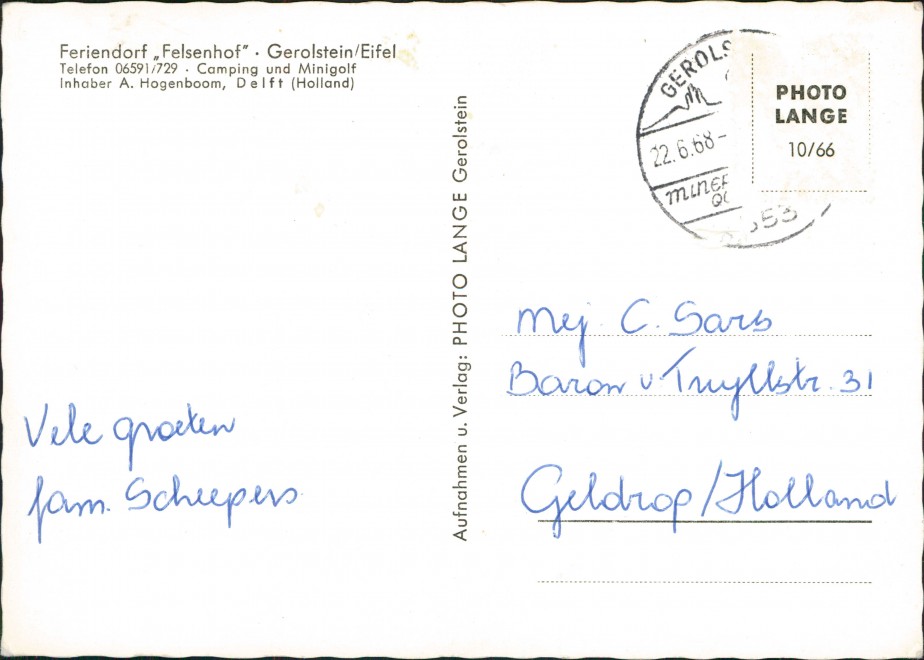 Feriendorf „Felsenhof" · Gerolstein/Eifel
Telefon 06591/729 · Camping und Minigolf
Inhaber A. Hogenboom, Delft (Holland)
Aufnahmen u. Verlag: PHOTO LANGE Gerolstein
GEROLS
22.6.68-
MINER
QU
553
PHOTO
LANGE
10/66
Mej. C. Sars
Baron v. Tuyllstr. 31
Geldrop/Holland
Vele groeten
fam. Scheepers